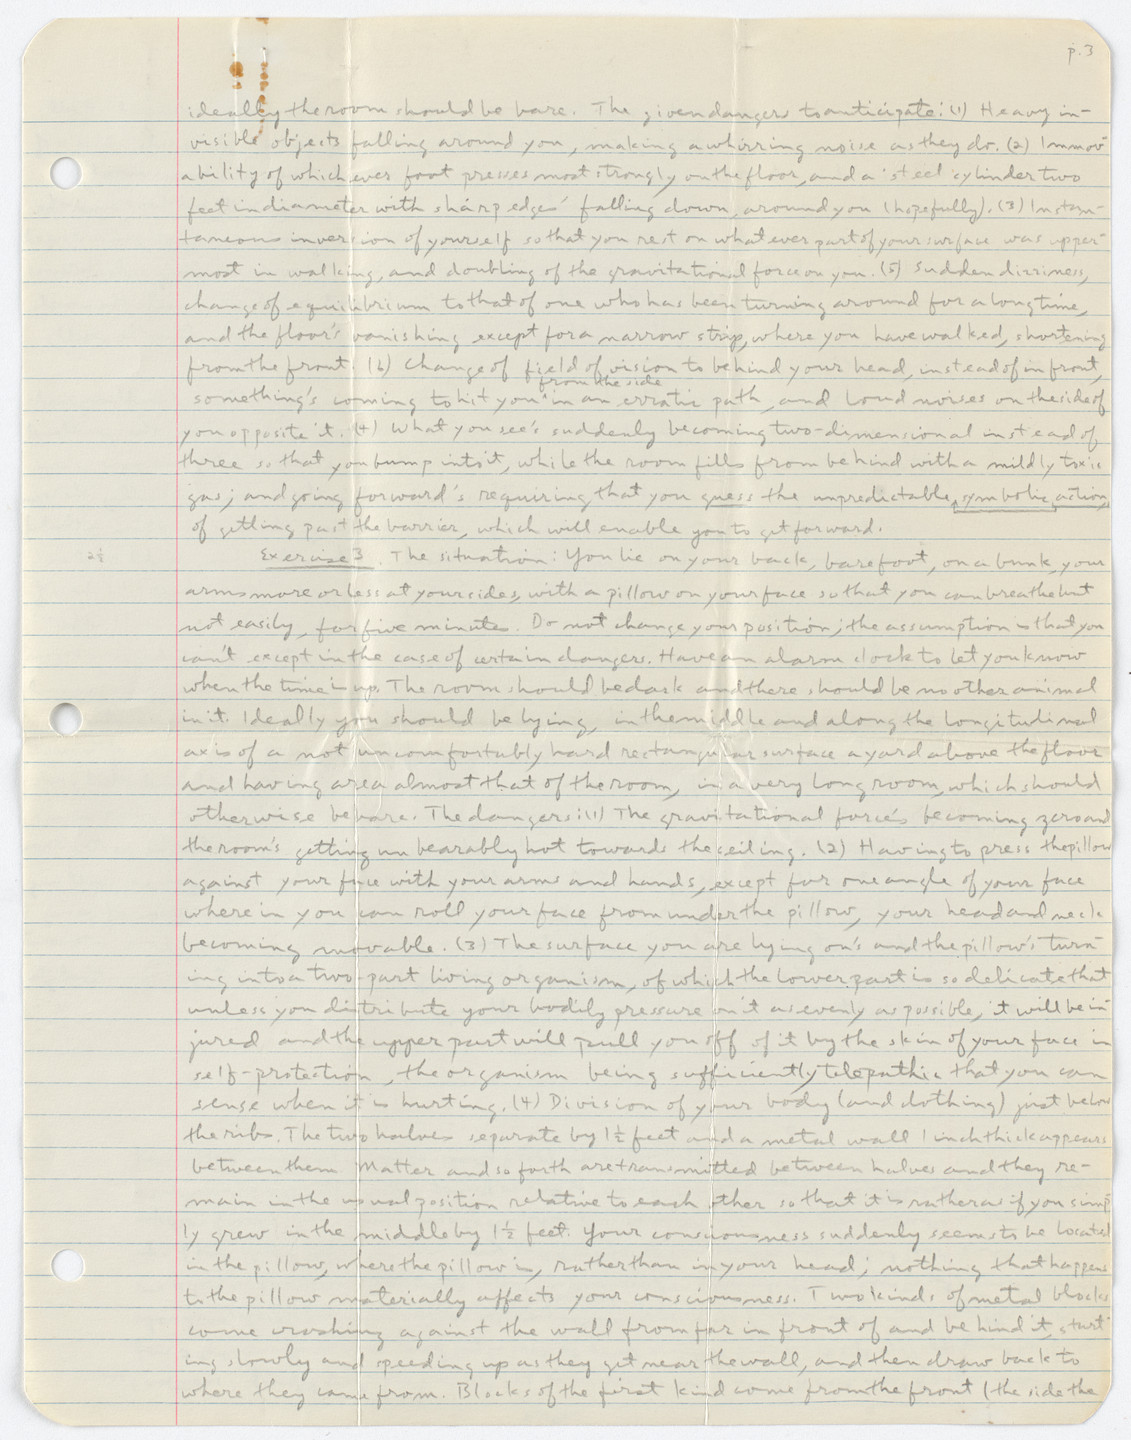 p.3
ideally the room should be bare. The given dangers to anticipate: (1) Heavy in-
visible objects falling around you, making a whirring noise as they do. (2) Immov-
ability of whichever foot presses most strongly on the floor, and a 'steel cylinder two
feet in diameter with sharp edges' falling down, around you (hopefully). (3) Instan-
taneous inversion of yourself so that you rest on whatever part of your surface was upper-
most in walking, and doubling of the gravitational force on you. (5) Sudden dizziness,
change of equilibrium to that of one who has been turning around for a long time,
and the floor's vanishing except for a narrow strip, where you have walked, shortening
from the front. (6) Change of field of vision to behind your head, instead of in front,
from the side
something's coming to hit you ^ in an erratic path, and loud noises on the side of
you opposite it. (4) What you see's suddenly becoming two-dimensional instead of
three so that you bump into it, while the room fills from behind with a mildly toxic
gas; and going forward's requiring that you guess the unpredictable, symbolic action,
of getting past the barrier, which will enable you to get forward.
2½ Exercise 3. The situation: You lie on your back, barefoot, on a bunk, your
arms more or less at your sides, with a pillow on your face so that you can breathe but
not easily, for five minutes. Do not change your position; the assumption is that you
can't except in the case of certain dangers. Have an alarm clock to let you know
when the time is up. The room should be dark and there should be no other animal
in it. Ideally you should be lying, in the middle and along the longitudinal
axis of a not uncomfortably hard rectangular surface a yard above the floor
and having area almost that of the room, in a very long room, which should
otherwise be bare. The dangers: (1) The gravitational force's becoming zero and
the room's getting unbearably hot towards the ceiling. (2) Having to press the pillow
against your face with your arms and hands, except for one angle of your face
wherein you can roll your face from under the pillow, your head and neck
becoming movable. (3) The surface you are lying on's and the pillow's turn-
ing into a two-part living organism, of which the lower part is so delicate that
unless you distribute your bodily pressure on it as evenly as possible, it will be in-
jured and the upper part will pull you off of it by the skin of your face in
self-protection, the organism being sufficiently telepathic that you can
sense when it is hurting. (4) Division of your body (and clothing) just below
the ribs. The two halves separate by 1½ feet and a metal wall 1 inch thick appears
between them. Matter and so forth are transmitted between halves and they re-
main in the usual position relative to each other so that it is rather as if you simp-
ly grew in the middle by 1½ feet. Your consciousness suddenly seems to be located
in the pillow, where the pillow is, rather than in your head; nothing that happens
to the pillow materially affects your consciousness. Two kinds of metal blocks
come crashing against the wall from far in front of and behind it, start-
ing slowly and speeding up as they get near the wall, and then draw back to
where they came from. Blocks of the first kind come from the front (the side the